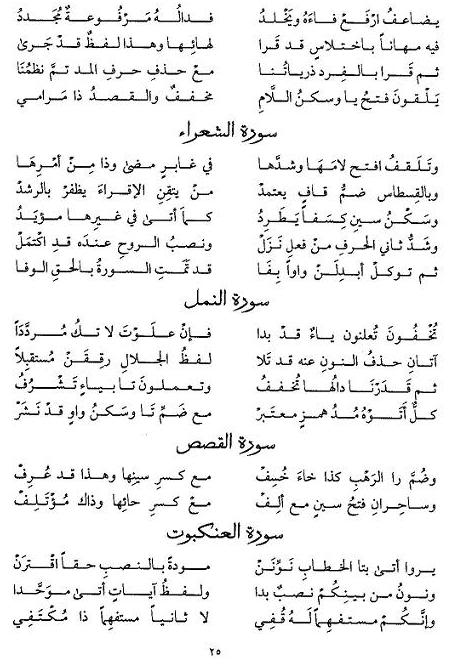 يضاعفُ ارْفَعْ فاءَهُ ويَخْلُدُ فدالُهُ مَرْفُوعةٌ مُجَددُ
فيه مهاناً باختلاسٍ قد قَرا لهائِها وهذا لفظٌ قدْ جَرىٰ
ثم قَرا بالفِردِ ذرياتُنا مَعْ حذفِ حرفِ المد تمَّ نظمُنَا
يَلْقونَ فتحُ يا وسكنُ اللَّامِ مخففٌ والقصدُ ذا مَرامي
سورة الشعراء
وتَلقفُ افتح لامَهَا وشدُّها في غابرٍ مضىٰ وذا مِنْ أمْرِهَا
وبالقِسطاسِ ضمُّ قافٍ يعتمدْ منْ يتقِنِ الإقراءَ يظفرْ بالرشدْ
وسَكِّنْ سينِ كِسَفاً يَطَّرِدُ كماَ أتىٰ في غيرِها مؤيَّدُ
وشدُّ ثاني الحرفِ منْ فعلِ نَزَلْ ونصبُ الروحِ عندَه قدِ اكتَمَلْ
ثم توكل أبدِلَنْ واواً بِفَا قد تَمَّتِ السورةُ بالحقِ الوفا
سورة النمل
تُخْفُونَ تُعلنون ياءٌ قد بدا فإنْ علَوْتَ لا تكُ مُردَّدَاً
آتانِ حذفُ النونِ عنه قد تَلا لفظُ الجلالِ رقِقَنْ مُستقبِلاً
ثم قَدَرْنَا دالُها تُخففُ وتعملونَ تا بياءٍ تَشْرُفُ
كلٌّ أتَوْهُ مُدُّ همزٍ معتبَرْ مع ضَمِّ تا وسَكنُ واوٍ قدْ نَشَرْ
سورة القصص
وضُمَّ را الرَهْبِ كذا خاءَ خُسِفْ مع كسرِ سينِها وهذا قد عُرِفْ
وساحِرانِ فتحُ سينٍ مع ألِفْ مع كسرِ حائِها وذاك مُؤْتَلِفْ
سورة العنكبوت
يروا أتىٰ بتا الخطابِ نَوِّنَنْ مودةً بالنصبِ حقاً اقترَنْ
ونونُ من بينِكُمْ نصبٌ بدا ولفظُ آياتٍ أتىٰ موَحَّدا
وإنَّكُمْ مستفهِماً لَهُ قُفِي لا ثانياً مستفهِماً ذا مُكْتَفِي
٢٥